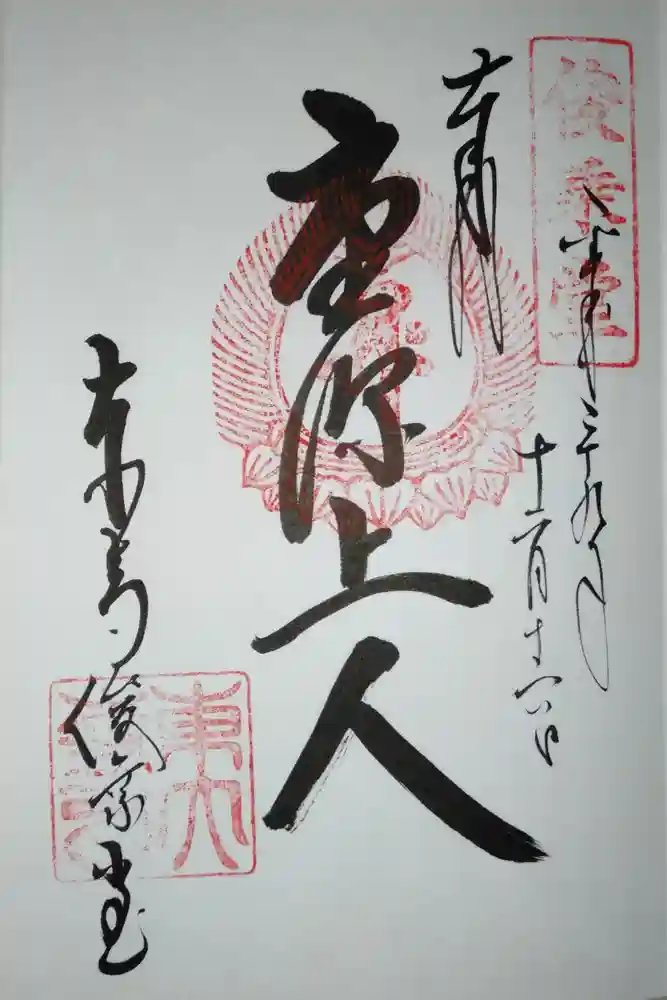 俊乗堂
平成二十九年
十二月十六日
奉拝
重源上人
東大寺俊乗堂